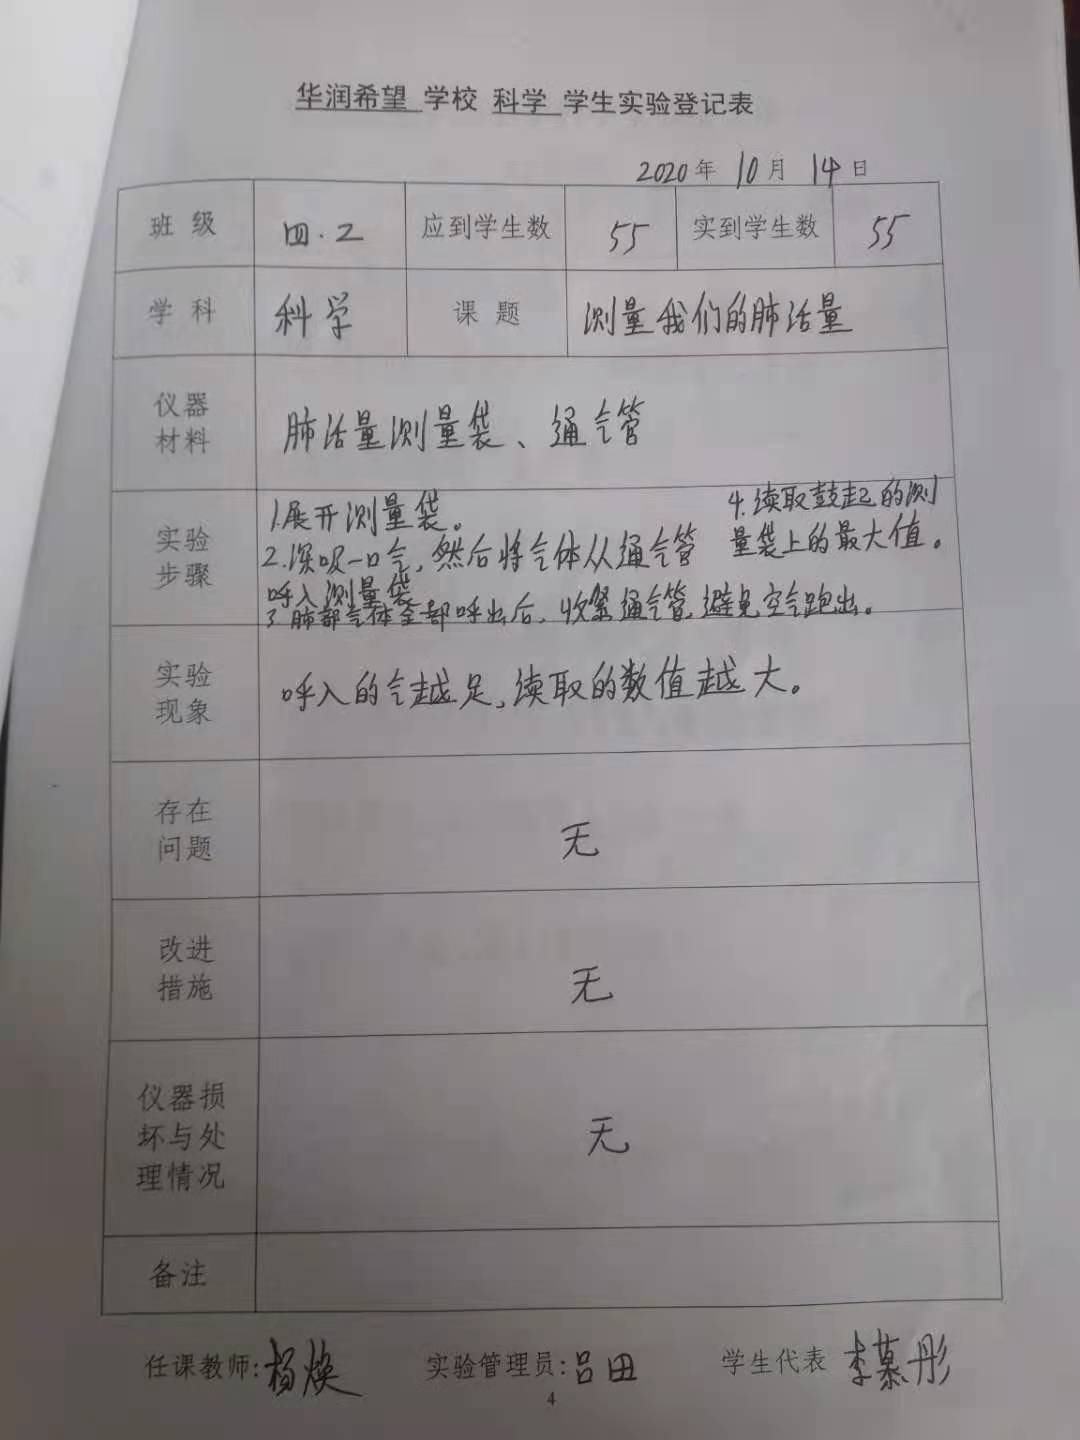 华润希望 学校 科学 学生实验登记表
2020年 10月 14日
班级 四.2 应到学生数 55 实到学生数 55
学科 科学 课题 测量我们的肺活量
仪器
材料
肺活量测量袋、通气管
实验
步骤
1.展开测量袋。
2.深吸一口气,然后将气体从通气管
呼入测量袋
3 肺部气体全部呼出后,收紧通气管,避免空气跑出。
4.读取鼓起的测
量袋上的最大值。
实验
现象
呼入的气越足,读取的数值越大。
存在
问题
无
改进
措施
无
仪器损
坏与处
理情况
无
备注
任课教师:杨焕 实验管理员:吕田 学生代表 李慕彤
4